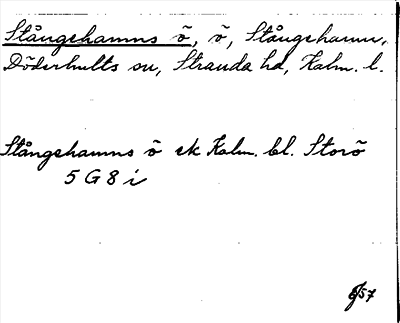 Stångehamns ö, ö, Stångehamn,
Döderhults sn, Stranda hd, Kalm. l.
Stångehamns ö ek Kalm. bl. Storö
5 G 8 i